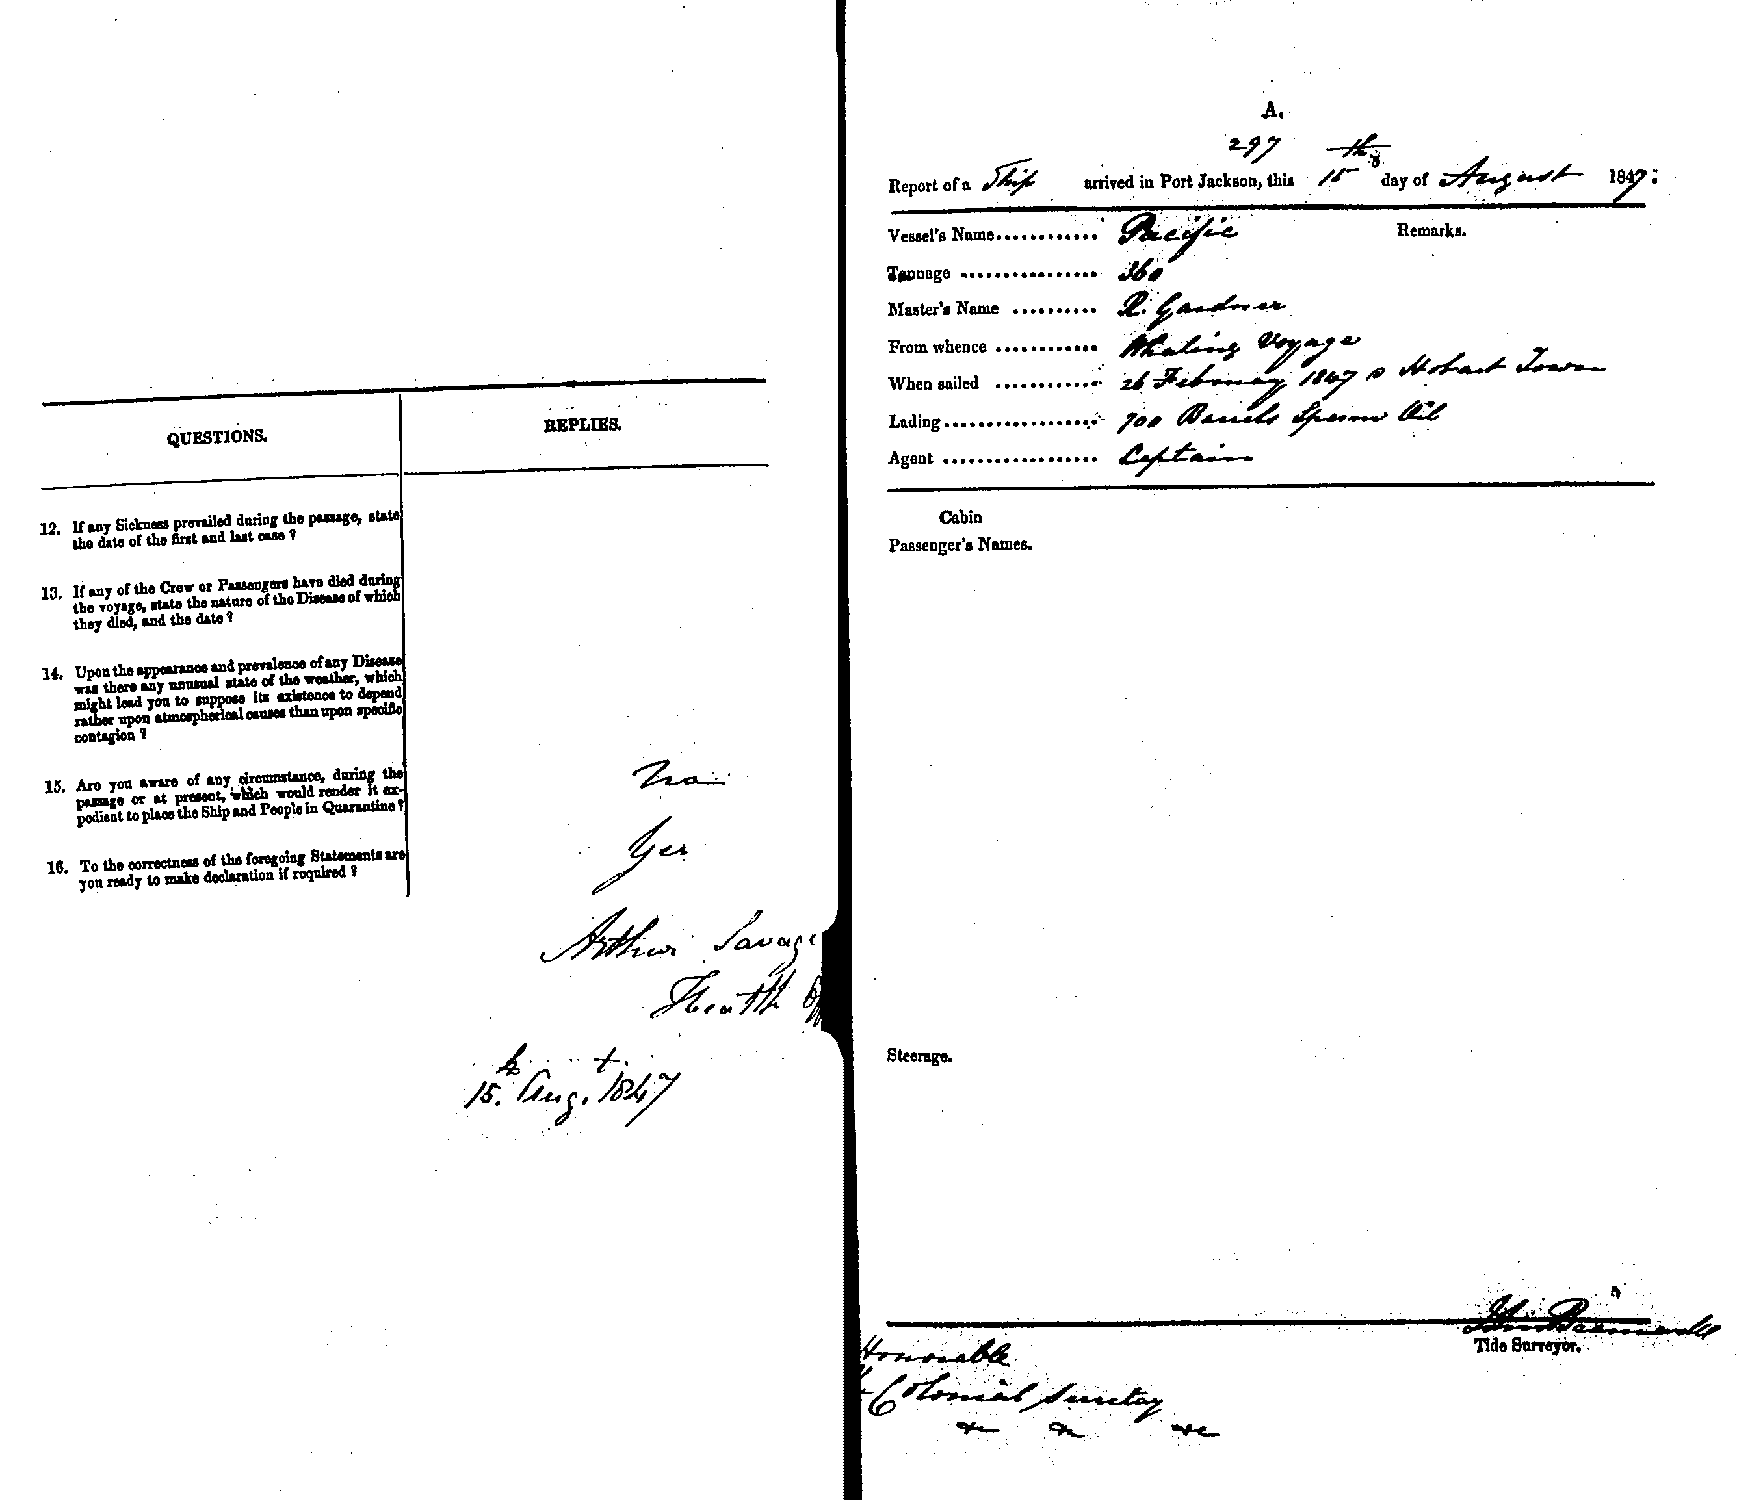 QUESTIONS.
REPLIES.
12. If any Sickness prevailed during the passage, state
the date of the first and last case ?
13. If any of the Crew or Passengers have died during
the voyage, state the nature of the Disease of which
they died, and the date ?
14. Upon the appearance and prevalence of any Disease
was there any unusual state of the weather, which
might lead you to suppose its existence to depend
rather upon atmospherical causes than upon specific
contagion ?
15. Are you aware of any circumstance, during the
passage or at present, which would render it ex-
pedient to place the Ship and People in Quarantine ?
No
16. To the correctness of the foregoing Statements are
you ready to make declaration if required ?
Yes
Arthur Savage
Health
15. Aug.t 1847
A.
297
Report of a Ship arrived in Port Jackson, this 15th day of August 1847:
Vessel's Name............ Pacific
Remarks.
Tonnage ................ 360
Master's Name .......... R. Gardner
From whence ............ Whaling Voyage
When sailed ............ 26 February 1847 Hobart Town
Lading.................. 700 Barrels Sperm Oil
Agent .................. Captain
Cabin
Passenger's Names.
Steerage.
Tide Surveyor.
Honorable
Colonial Secretary
&c &c &c